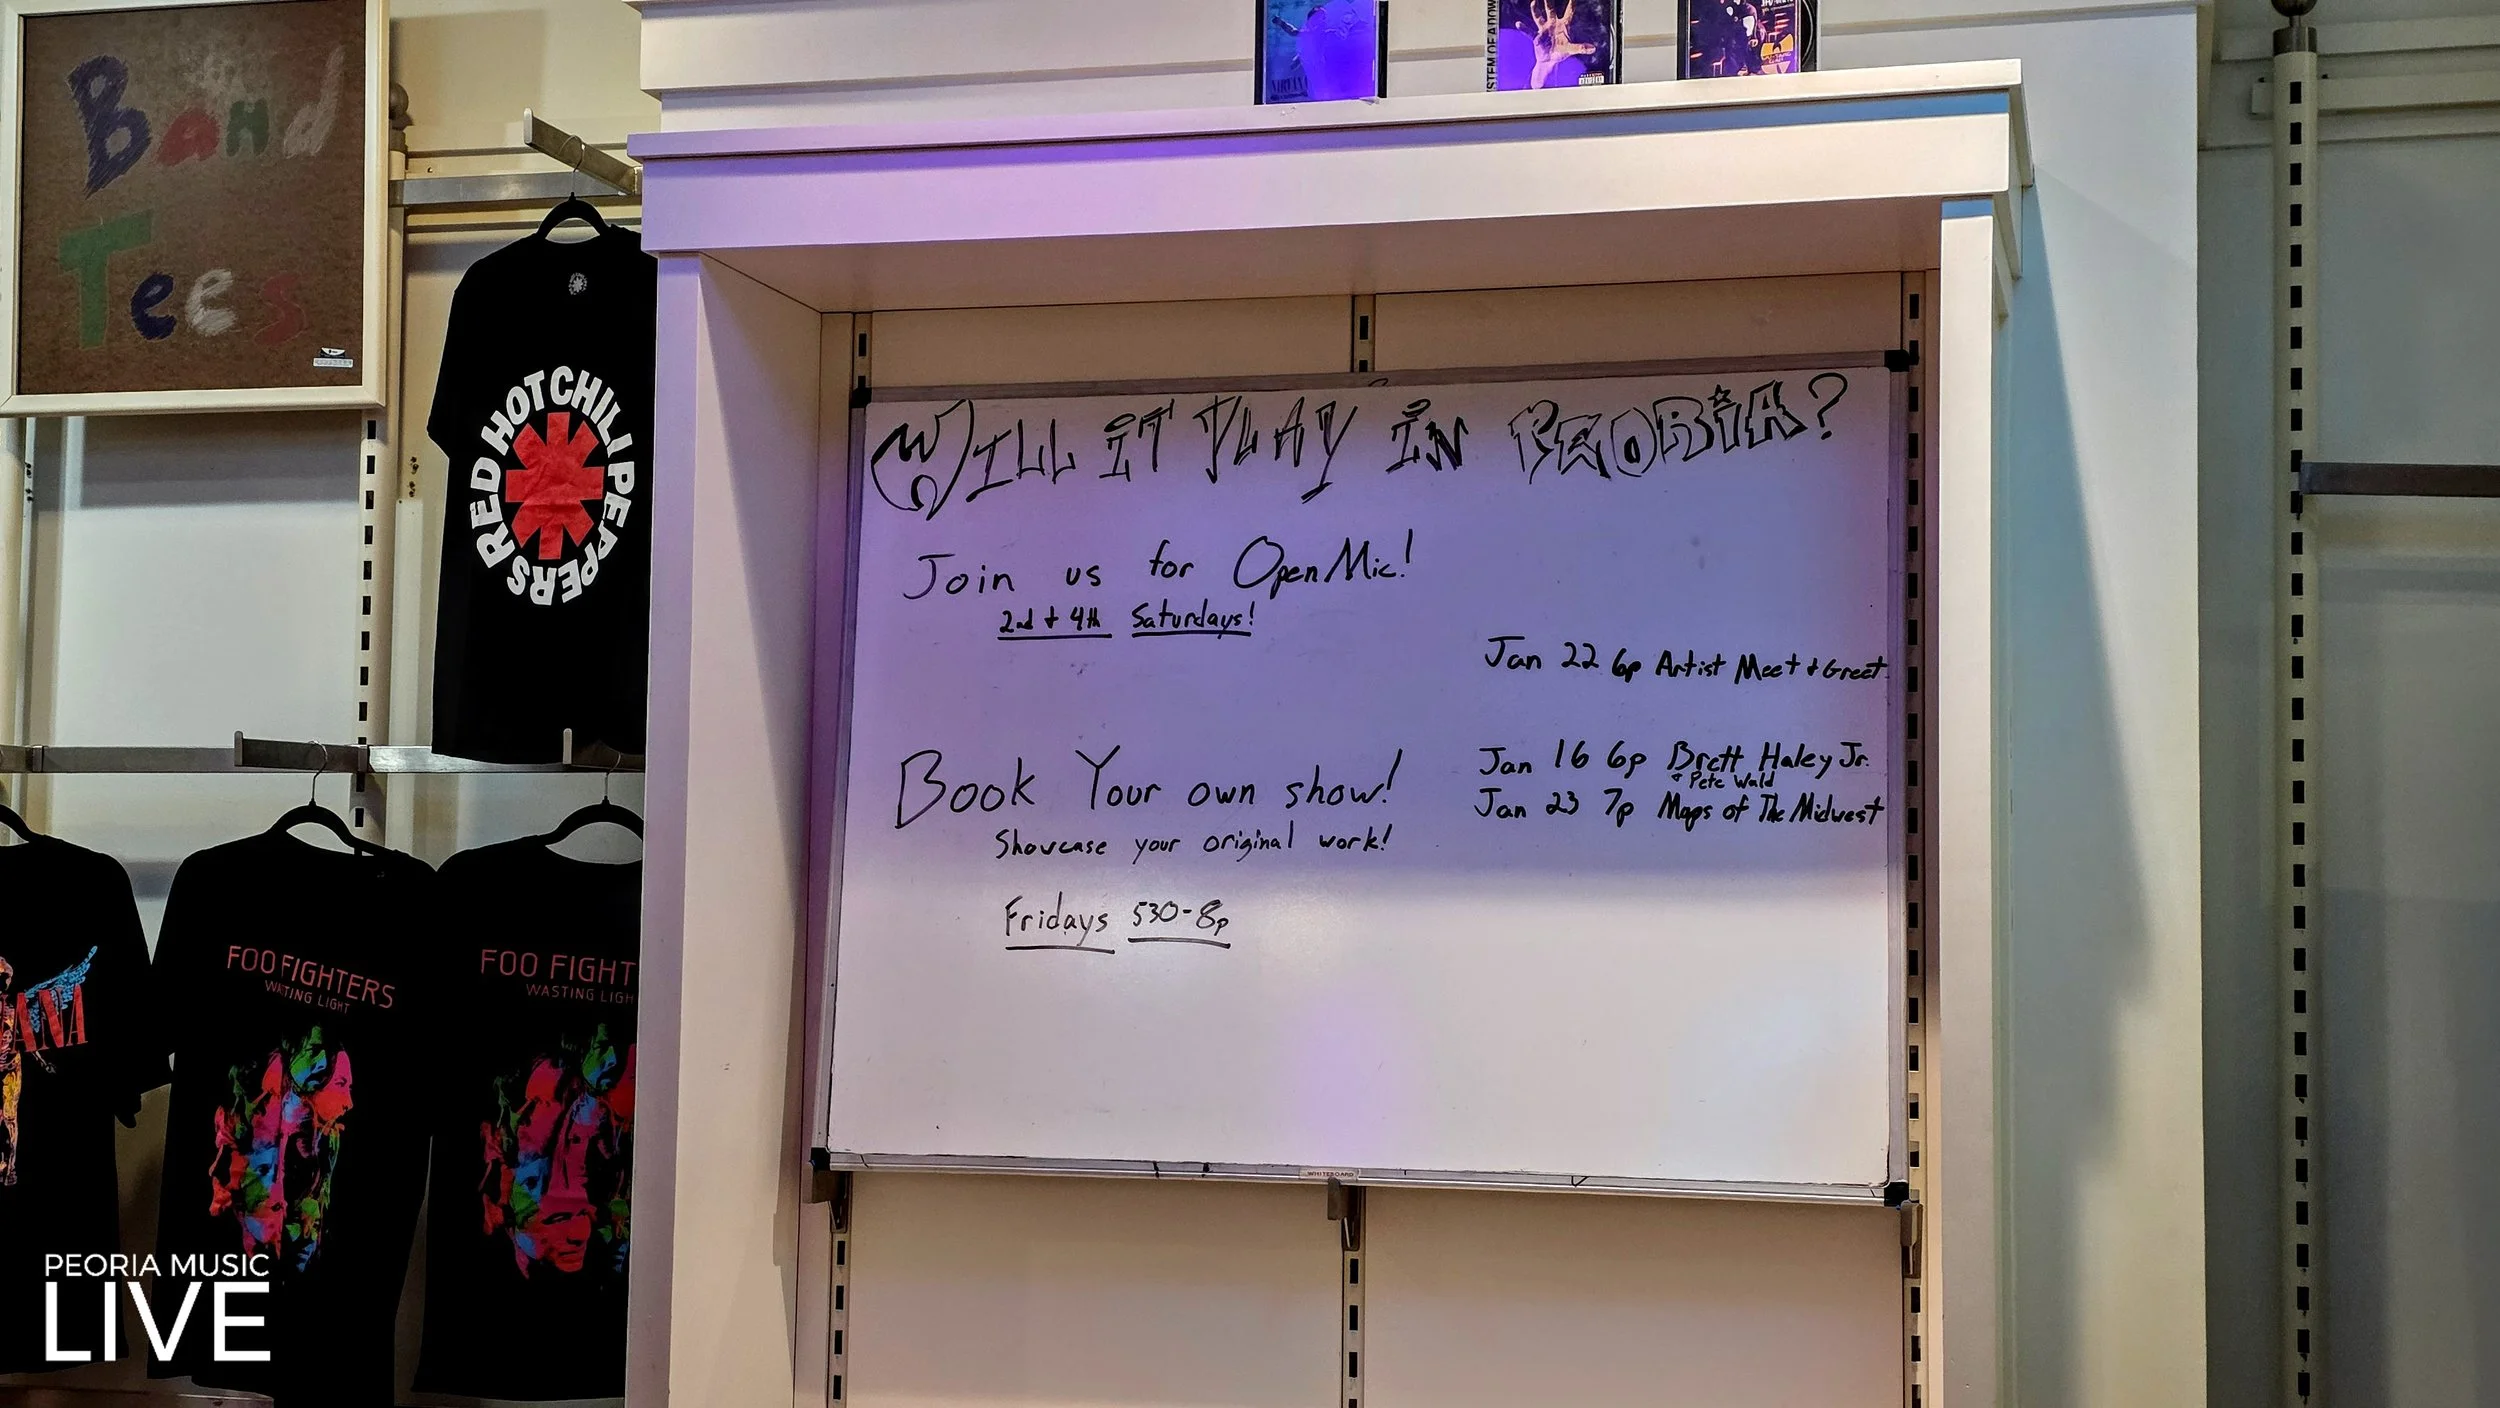 Band
Tees
RED HOT CHILI PEPPERS
NIRVANA
WILL iT PLAY iN PEORiA?
Join us for Open Mic!
2nd + 4th Saturdays!
Jan 22 6p Artist Meet + Greet
Book Your own show!
Showcase your original work!
Fridays 530-8p
Jan 16 6p Brett Haley Jr.
+ Pete Wald
Jan 23 7p Maps of The Midwest
WHITEBOARD
ANA
FOO FIGHTERS
WASTING LIGHT
FOO FIGHT
WASTING LIGH
PEORIA MUSIC
LIVE